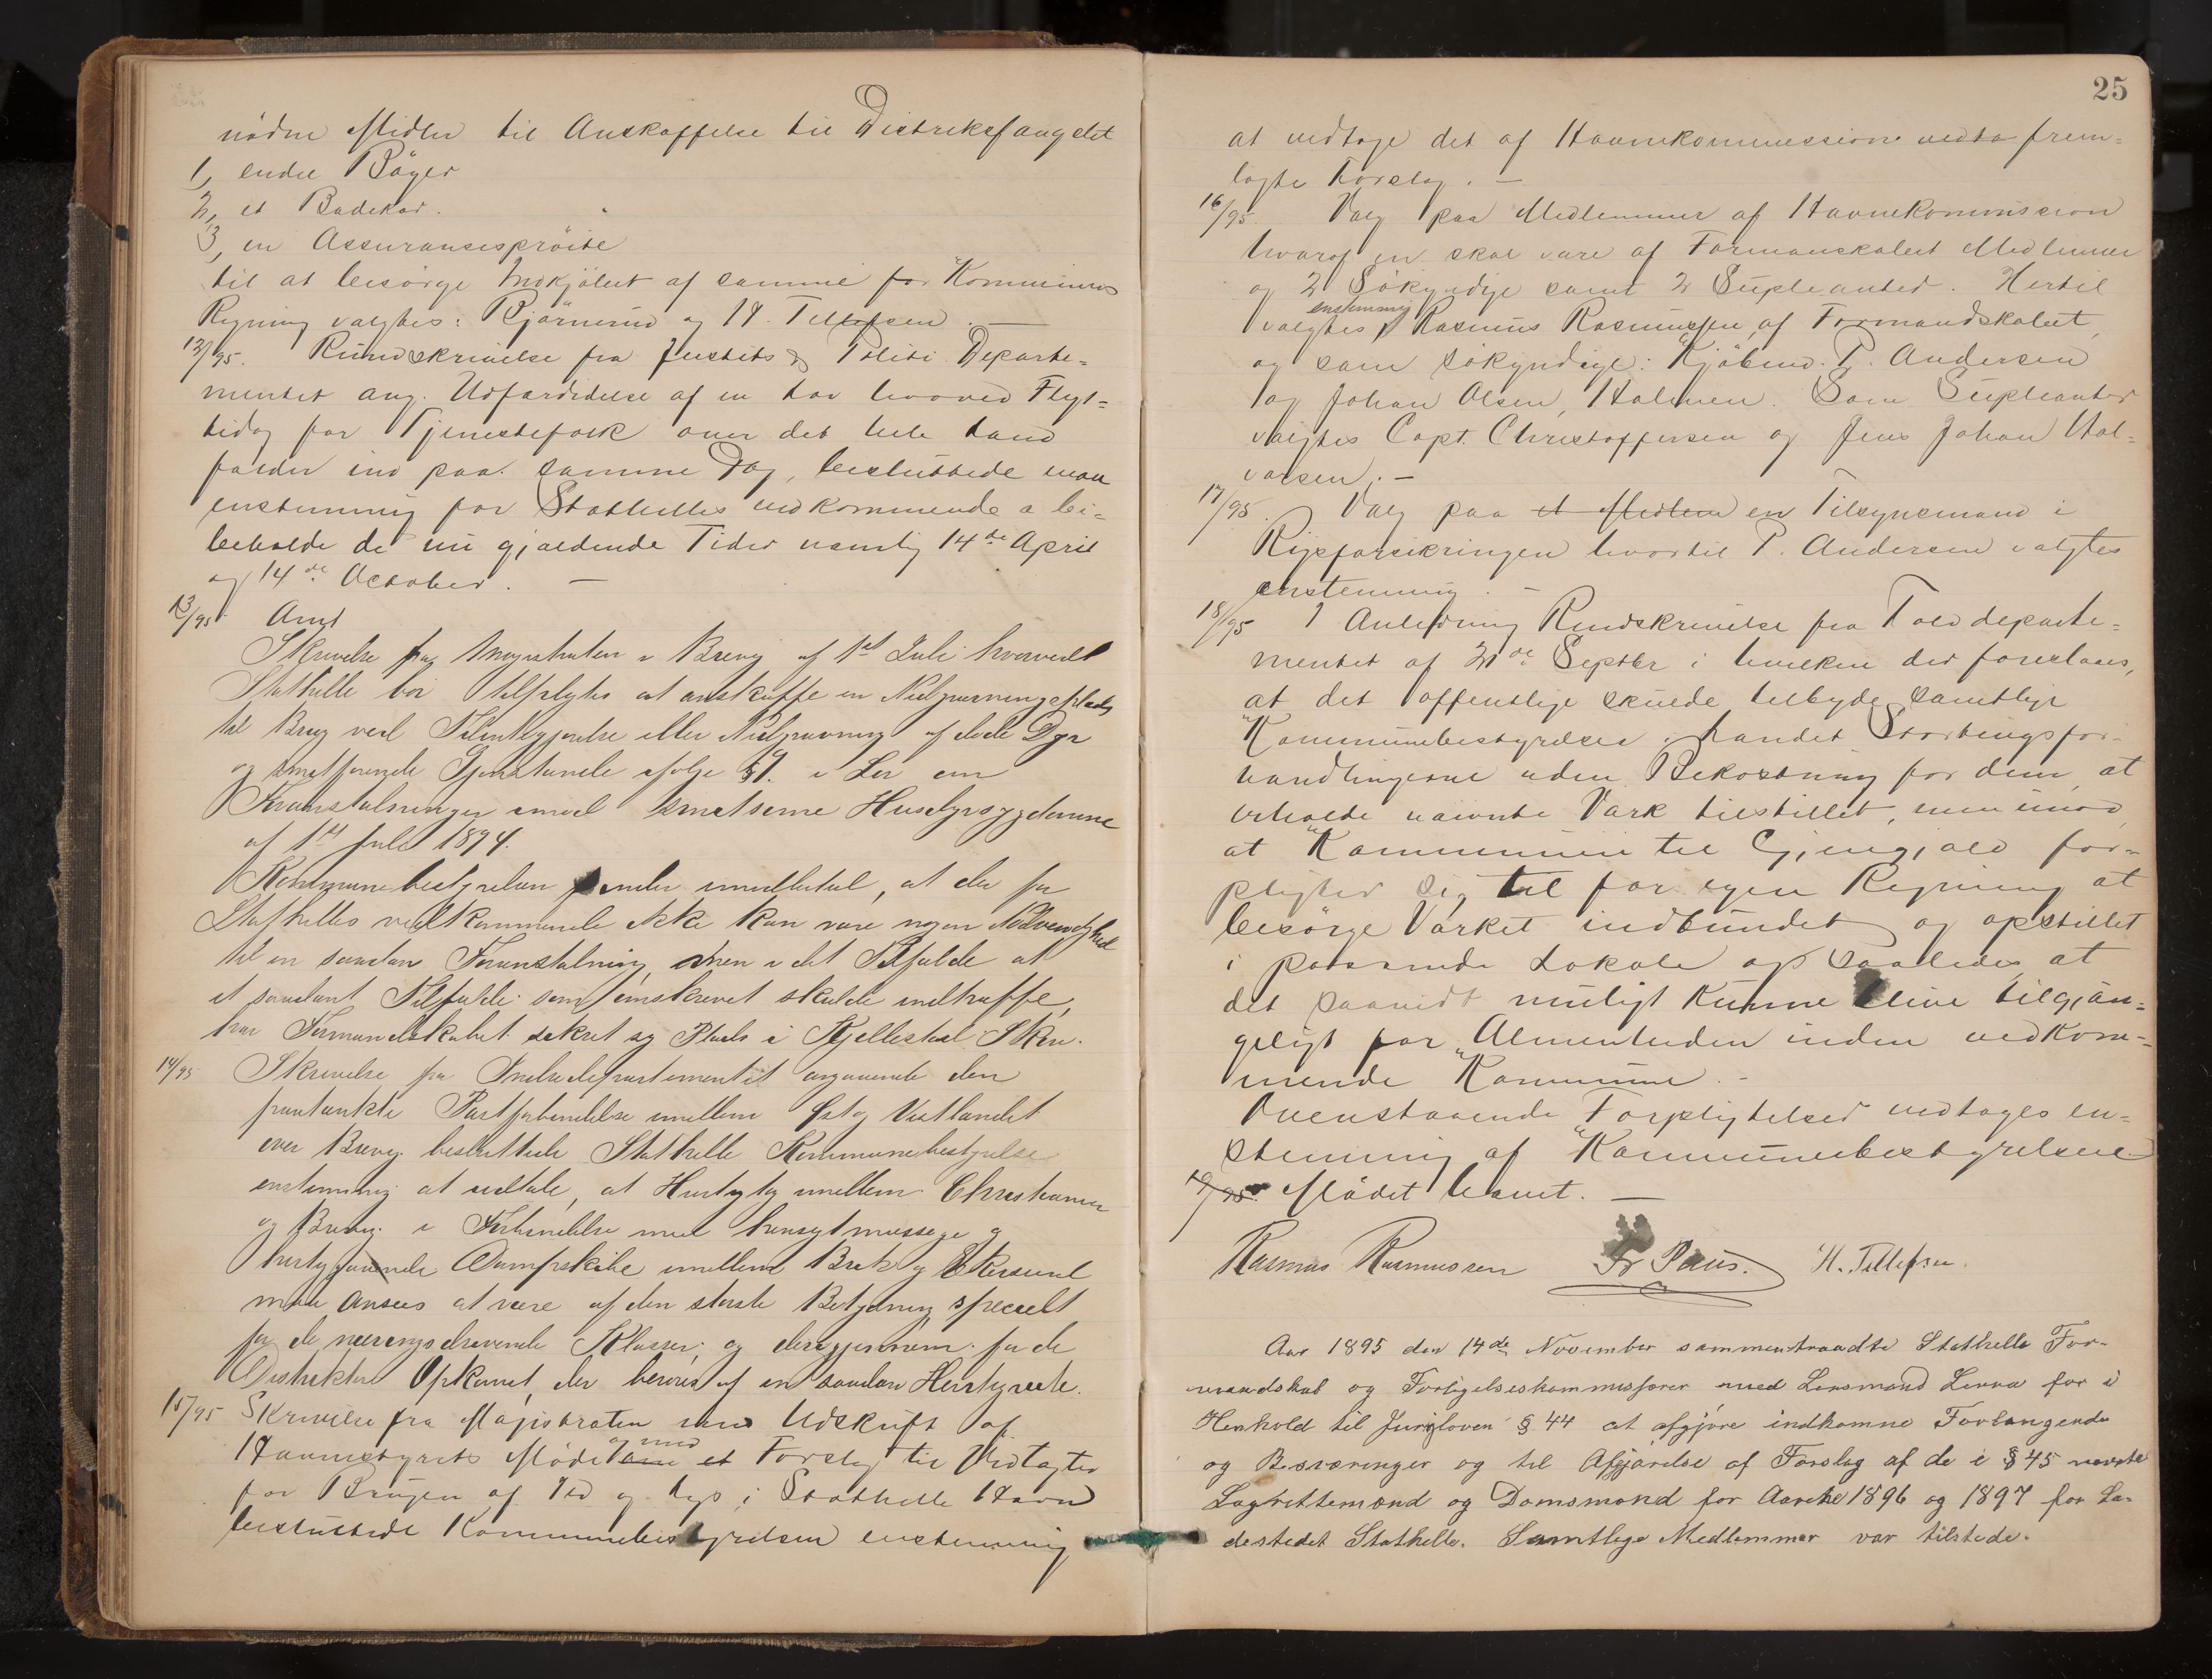 nödne Midler til Anskaffelse til Distriksfængslet
1, endel Böger
2, et Badekar.
3, en Assuransesprøite
til at besörge Indkjöbet af samme for Kommunens
Regning valgtes: Bjørnerud og H. Tellefsen. —
12/95. Rundskrivelse fra Justits & Politi Departe-
mentet ang. Udfærdidelse af en Lov hvorved Flyt-
tidag for Tjenestefolk over det hele Land
falder ind paa samme Dag, besluttede man
enstemmig for Stathelles vedkommende a bi-
beholde de nu gjældende Tider nemlig 14de April
og 14de October. —
13/95. Amt
Skrivelse fra Magistraten i Brevig af 1st Juli hvorved
Stathelle bör tilpligtes at anskaffe en Nedgravningsplads
til Brug ved Tilintetgjørelse eller Nedgravning af døde Dyr
og smetførende Gjenstande ifølge § 9. i Lov om
Foranstaltninger imod smitsomme Husdyrsygdomme
af 1st Juli 1894.
Kommunebestyrelsen finder imidlertid, at der for
Stathelles vedkommende ikke kan være nogen Nödvendighed
til en saadan Foranstaltning, men i det Tilfælde at
et saadant Tilfælde som omskrevet skulde indtræffe,
har Formandskabet sikret sig Plads i Kjellestad Skov.
14/95 Skrivelse fra Indredepartementet angaaende den
paatænkte Postforbindelse imellem Øst og Vestlandet
over Brevig besluttede Stathelle Kommunebestyrelse
enstemmig at udtale, at Hurtigtog imellem Christiania
og Brevig i Forbindelse med hensigtmæssige og
hurtiggaaende Dampskibe imellem Brevik og Ekersund
maa ansees at være af den störste Betydning, specielt
for de næringsdrivende Klasser, og derigjennem for de
Distrikters Opkomst, der berøres af en saadan Hurtigroute.
15/95 Skrivelse fra Magistraten med Udskrift af
Havnestyrets Möde og med et Forslag til Vedtægter
for Brugen af Ild og Lys i Stathelle Havn
besluttede Kommunebestyrelsen enstemmig
25
at vedtage det af Havnekommissionen vedta frem-
lagte Forslag. —
16/95. Valg paa Medlemmer af Havnekommission
hvoraf en skal være af Formanskabet Medlemmer
og 2 Sökyndige samt 2 Supleanter. Hertil
valgtes enstemmig Rasmus Rasmussen, af Formandskabet,
og som sökyndige: Kjöbmd. P. Andersen
og Johan Olsen, Holmen. Som Supleanter
valgtes Capt. Christoffersen og Jens Johan Hal-
vorsen. —
17/95. Valg paa et Medlem en Tilsynsmand i
Rigsforsikringen hvortil P. Andersen valgtes
enstemmig. —
18/95 I Anledning Rundskrivelse fra Told departe-
mentet af 21de Septbr i hvilken der foreslaaes,
at det offentlige skulde tilbyde samtlige
Kommunebestyrelser i Landet Stortingsfor-
handlingerne uden Bekostning for dem, at
erholde nævnte Værk tilstillet, men imod
at Kommunen til Gjengjæld for-
pligter sig til for egen Regning at
besörge Værket indbundet og opstillet
i passende Lokale og saaledes at
det saavidt muligt kunne blive tilgjæn-
geligt for Almenheden inden vedkom-
mende Kommune. —
Ovenstaaende Forpligtelser vedtages en-
stemmig af Kommunebestyrelsen
19/95. Mödet hævet. —
Rasmus Rasmussen Fr Paus. H. Tellefsen.
Aar 1895 den 14de November sammentraadte Stathelle For-
mandskab og Forligelseskommissærer med Lensmand Linna for i
Henhold til Juryloven § 44 at afgjöre indkomne Forlangende
og Besværinger og til Afgjörelse af Forslag af de i § 45 nævnte
Lagrettemænd og Domsmænd for Aarene 1896 og 1897 for La-
destedet Stathelle. Samtlige Medlemmer var tilstede.